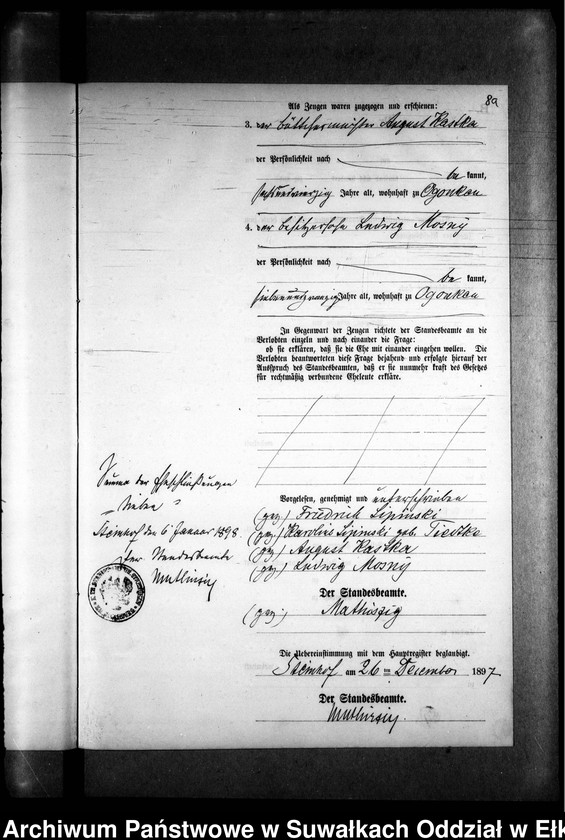 8a
Als Zeugen waren zugezogen und erschienen:
3. der Böttchermeister August Kastka
der Persönlichkeit nach
be kannt,
sechsundvierzig Jahre alt, wohnhaft zu Ogonken
4. der Besitzersohn Ludwig Mosny
der Persönlichkeit nach
be kannt,
siebenundzwanzig Jahre alt, wohnhaft zu Ogonken
In Gegenwart der Zeugen richtete der Standesbeamte an die
Verlobten einzeln und nach einander die Frage:
ob sie erklären, daß sie die Ehe mit einander eingehen wollen. Die
Verlobten beantworteten diese Frage bejahend und erfolgte hierauf der
Ausspruch des Standesbeamten, daß er sie nunmehr kraft des Gesetzes
für rechtmäßig verbundene Eheleute erkläre.
Vorgelesen, genehmigt und unterschrieben
(gez.) Friedrich Lipinski
(gez.) Karoline Lipinski geb. Tiedtke
(gez.) August Kastka
(gez.) Ludwig Mosny
Der Standesbeamte.
(gez.) Mathiszig
Die Uebereinstimmung mit dem Hauptregister beglaubigt.
Steinhof am 26 ten December 1897
Der Standesbeamte.
Mathiszig.
Summa der Eheschließungen
"Sieben"
Steinhof den 6 Januar 1898.
Der Standesbeamte
Mathiszig
Archiwum Państwowe w Suwałkach Oddział w Ełk